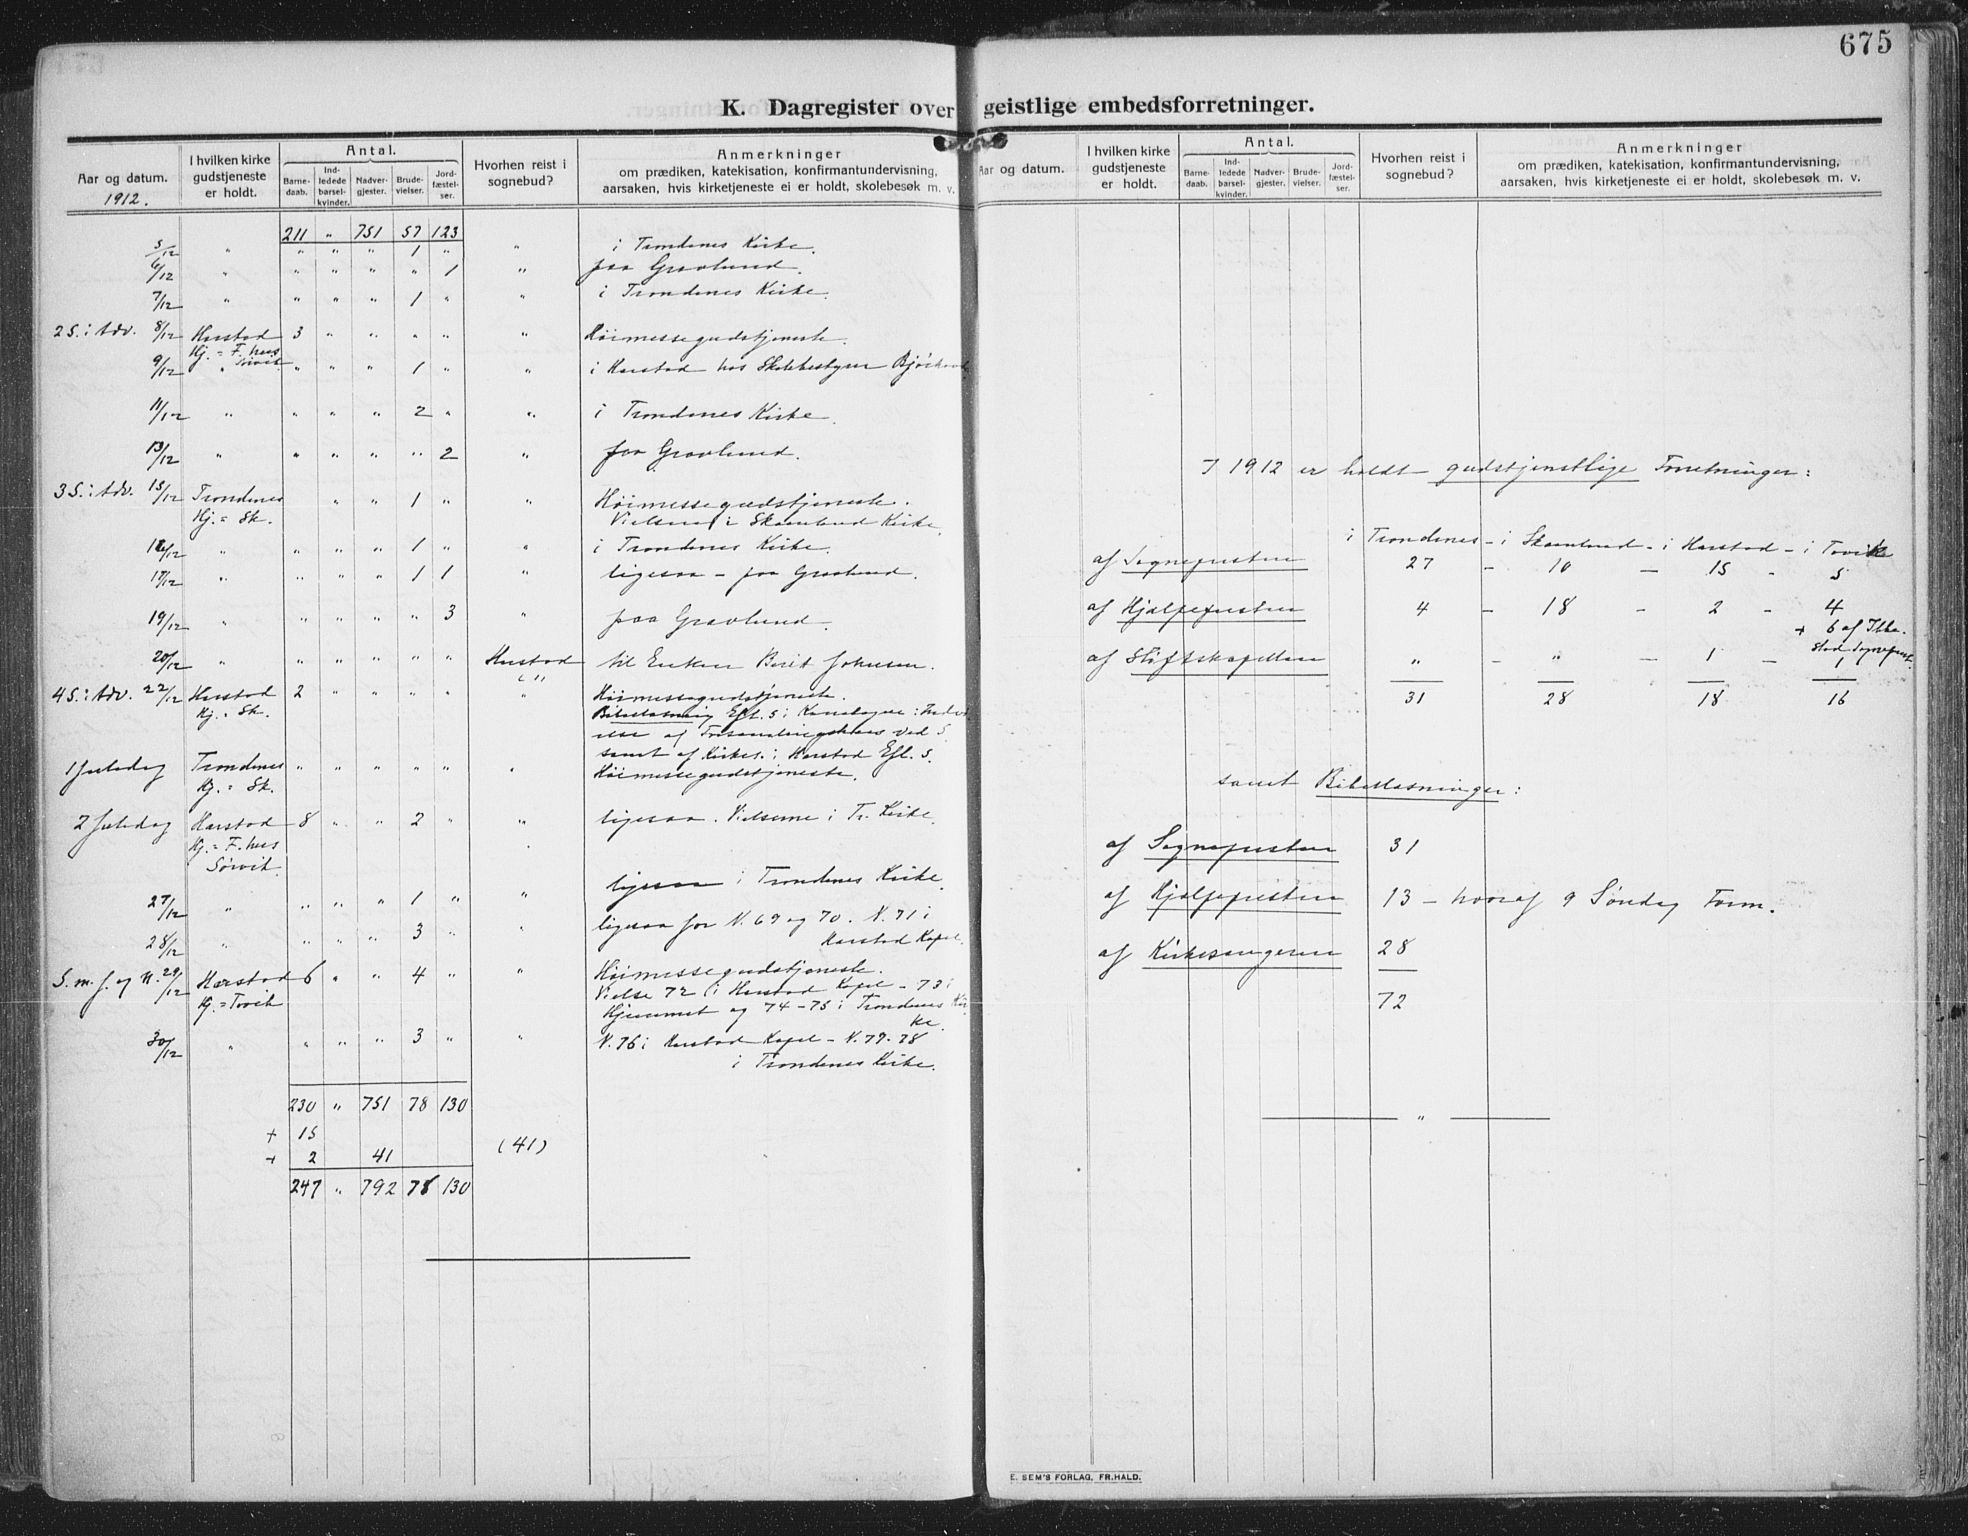 675
K. Dagregister over geistlige embedsforretninger.
Aar og datum.
1912.
I hvilken kirke gudstjeneste er holdt.
Antal.
Barne-daab.
Ind-ledede barsel-kvinder.
Nadver-gjester.
Brude-vielser.
Jord-fæstel-ser.
Hvorhen reist i sognebud?
Anmerkninger
om prædiken, katekisation, konfirmantundervisning,
aarsaken, hvis kirketjeneste ei er holdt, skolebesøk m. v.
211 " 751 57 123
5/12 " " " " 1 " " i Trondenes Kirke.
6/12 " " " " " 1 " paa Gravlund.
7/12 " " " " 1 " " i Trondenes Kirke.
2 S. i Adv. 8/12 Harstad 3 " " " " " Höimessegudstjeneste.
Hj. = F. hus
Sörvik
9/12 " " " " 1 " " i Harstad hos Skolebestyrer
11/12 " " " " 2 " " i Trondenes Kirke.
13/12 " " " " " 2 " paa Gravlund.
3 S. i Adv. 15/12 Trondenes " " 1 " " Höimessegudstjeneste.
Hj. = Sk. Vielsen i Skaanland Kirke.
16/12 " " " " 1 " " i Trondenes Kirke.
17/12 " " " " 1 1 ligesaa – paa Gravlund.
19/12 " " " " " 3 " paa Gravlund.
20/12 " " " " " " Harstad til Enken Berit Johnsen.
(1)
4 S. i Adv. 22/12 Harstad 2 " " " " " Höimessegudstjeneste.
Hj. = Sk. Bibellæsning Efl. 5 i
af ved S.
samt af Kirkes. i Harstad Efl. 5.
1 Juledag Trondenes " " " " " " Höimessegudstjeneste.
Hj. = Sk.
2 Juledag Harstad 8 " " 2 " " ligesaa. Vielserne i Tr. Kirke.
Hj. = F. hus
Sörvik.
27/12 " " " " 1 " " ligesaa i Trondenes Kirke.
28/12 " " " " 3 " " ligesaa for N. 69 og 70. N. 71 i
Harstad Kapel.
S. m. J. og N. 29/12 Harstad 6 " " 4 " " Höimessegudstjeneste.
Hj. = Tovik Vielse 72 i Harstad Kapel – 73 i
Hjemmet og 74–75 i Trondenes Kir-
ke.
30/12 " " " " 3 " " N. 76 i Harstad Kapel – N. 77. 78
i Trondenes Kirke.
230 " 751 78 130
+ 15
+ 2 41 (41)
247 " 792 78 130
Aar og datum.
I hvilken kirke gudstjeneste er holdt.
Antal.
Barne-daab.
Ind-ledede barsel-kvinder.
Nadver-gjester.
Brude-vielser.
Jord-fæstel-ser.
Hvorhen reist i sognebud?
Anmerkninger
om prædiken, katekisation, konfirmantundervisning,
aarsaken, hvis kirketjeneste ei er holdt, skolebesøk m. v.
I 1912 er holdt gudstjenstlige Forretninger:
i Trondenes – i Skaanland – i Harstad – i Tovik
af Sognepresten 27 – 10 – 15 – 5
af Hjælpepresten 4 – 18 – 2 – 4
+ 6 af Ibbe-
stad Sogneprest.
af Stiftskapellan " – " – 1 – 1
31 28 18 16
samt Bibellæsninger:
af Sognepresten 31
af Hjælpepresten 13 – hvoraf 9 Söndag Form.
af Kirkesangeren 28
72
"
E. SEM'S FORLAG, FR.HALD.